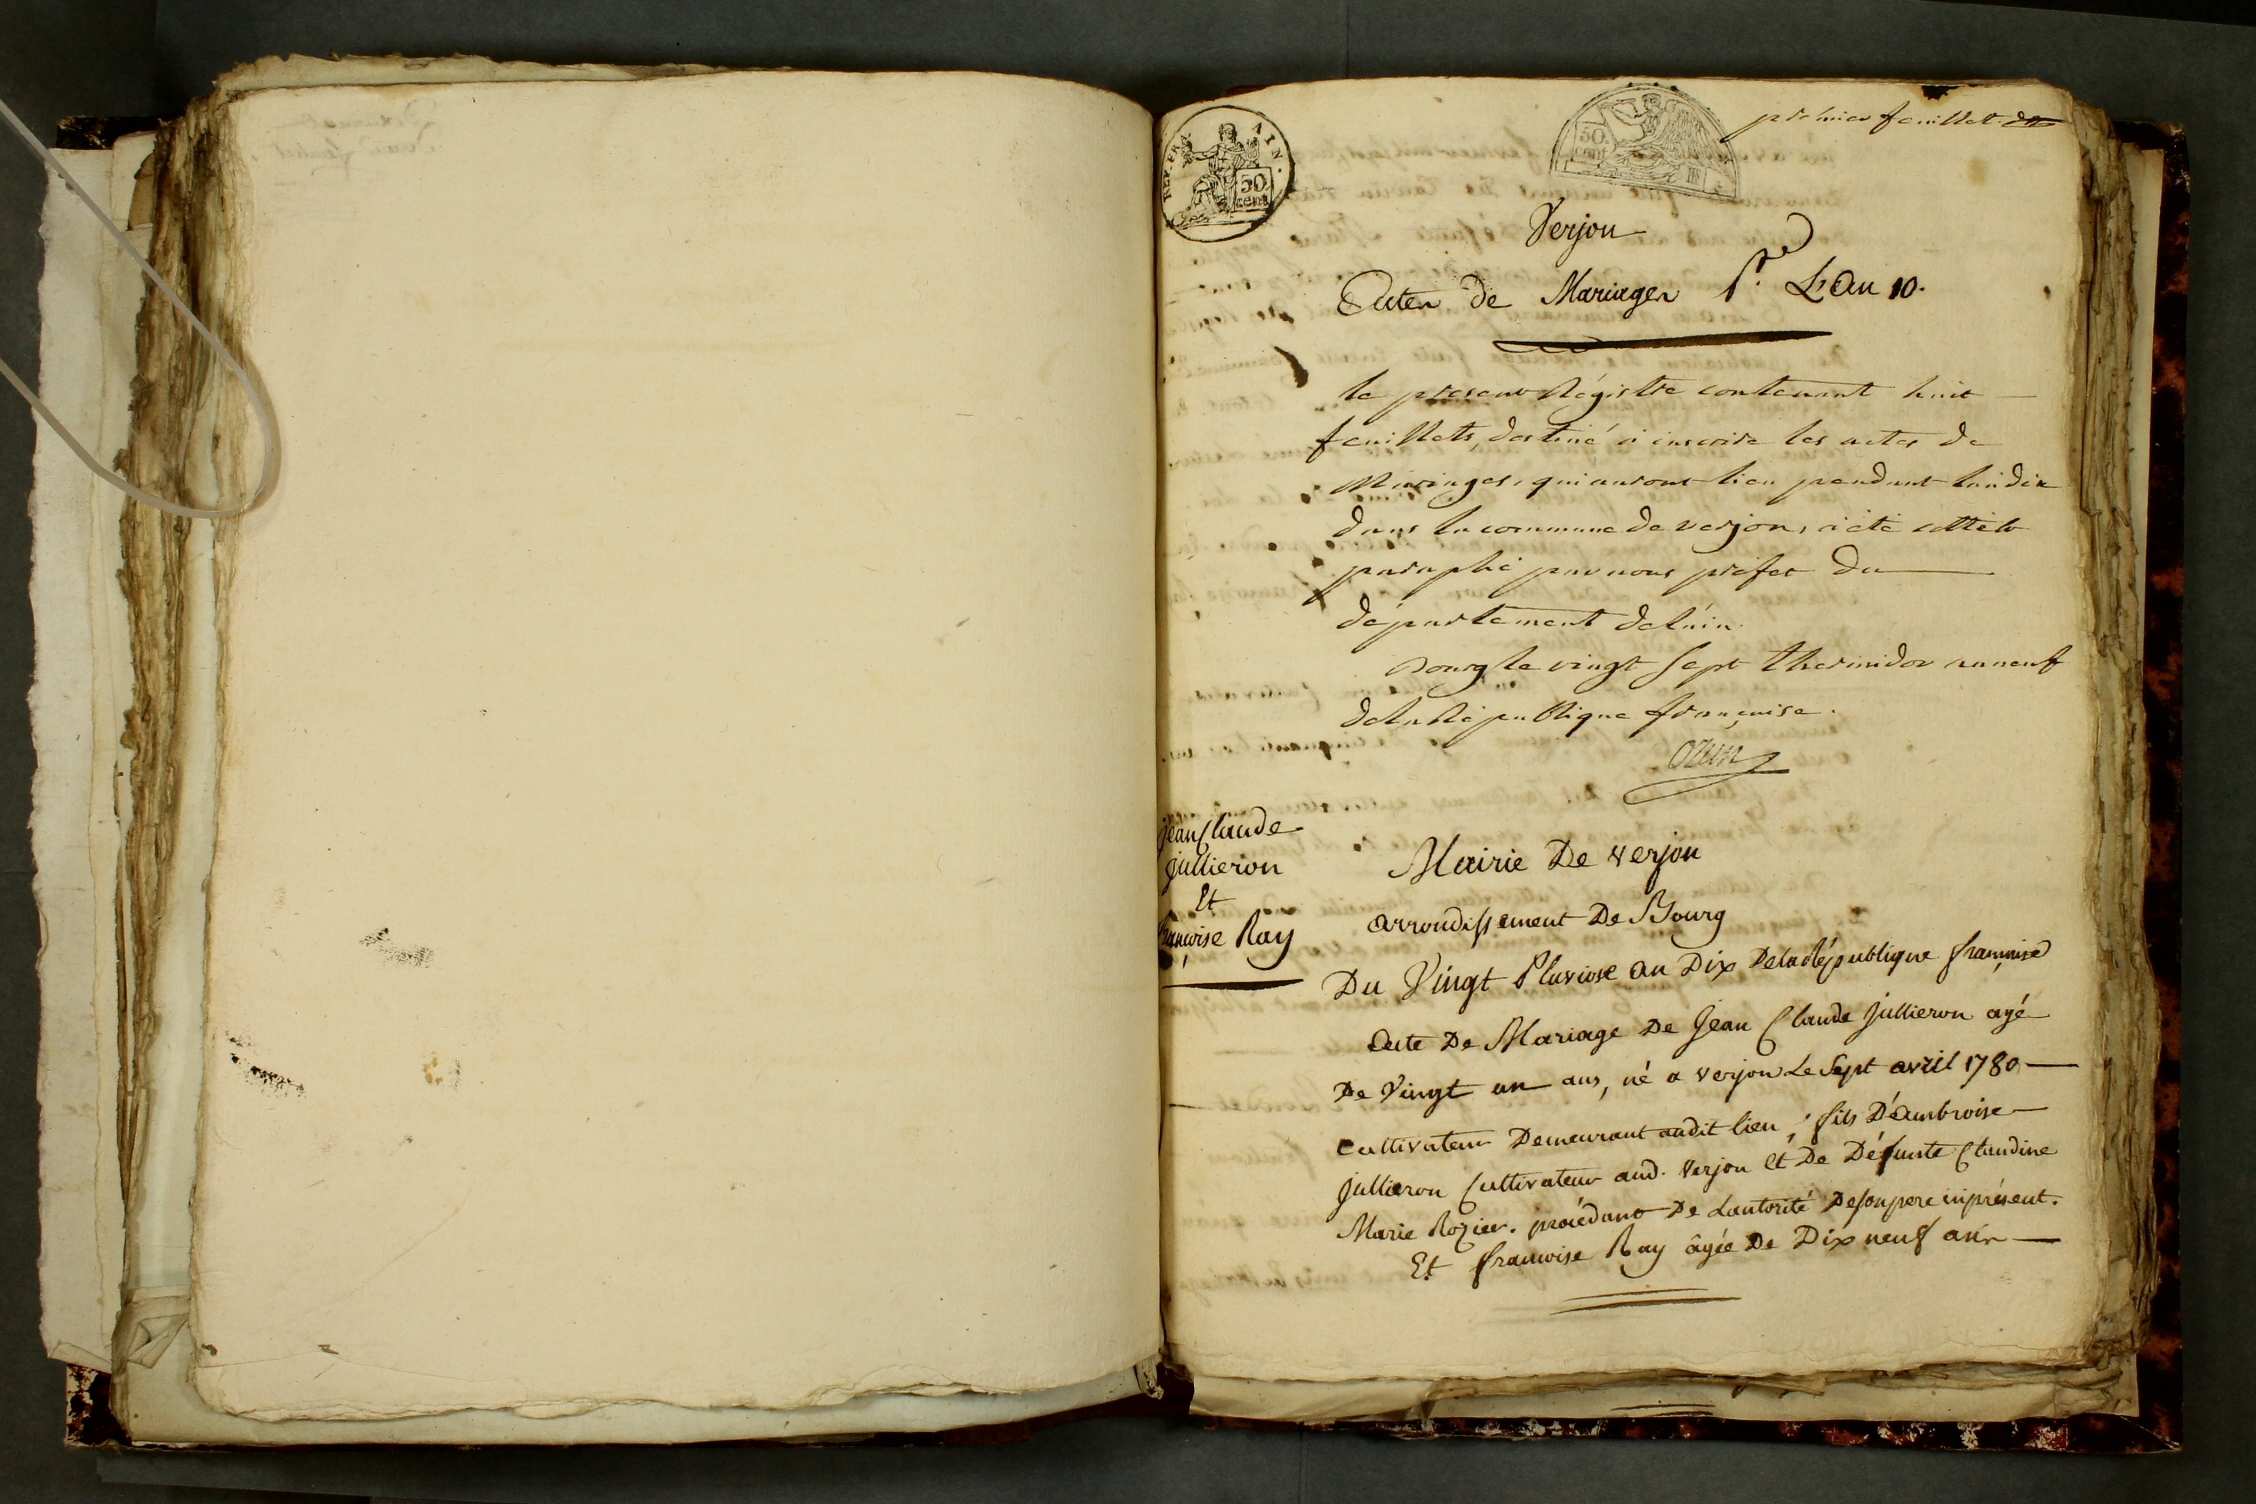 premier feuillet
REP. FRA.
AIN.
50
cent
50
cent
Verjon
Actes de Mariages Pr. L'an 10.
le present Régistre contenant huit
feuillets, destiné à inscrire les actes de
Mariages, qui auront lieu pendant l'an dix
dans la commune de verjon, a été cotté et
paraphé par nous préfet du
département de l'ain.
Bourg le vingt sept thermidor an neuf
de la République française.
Ozun
Jean Claude
Jullieron
Et
francoise Ray
Mairie De Verjon
arrondissement De Bourg
Du Vingt Pluviose an Dix De la République française
Acte De Mariage De Jean Claude Jullieron agé
De Vingt un ans, né a verjon Le Sept avril 1780
Cultivateur Demeurant audit lieu ; fils D'ambroise
Jullieron Cultivateur aud. Verjon Et De Défunte Claudine
Marie Rozier. procédant De Lautorité De son pere ici présent.
Et francoise Ray âgée De Dix neuf ans